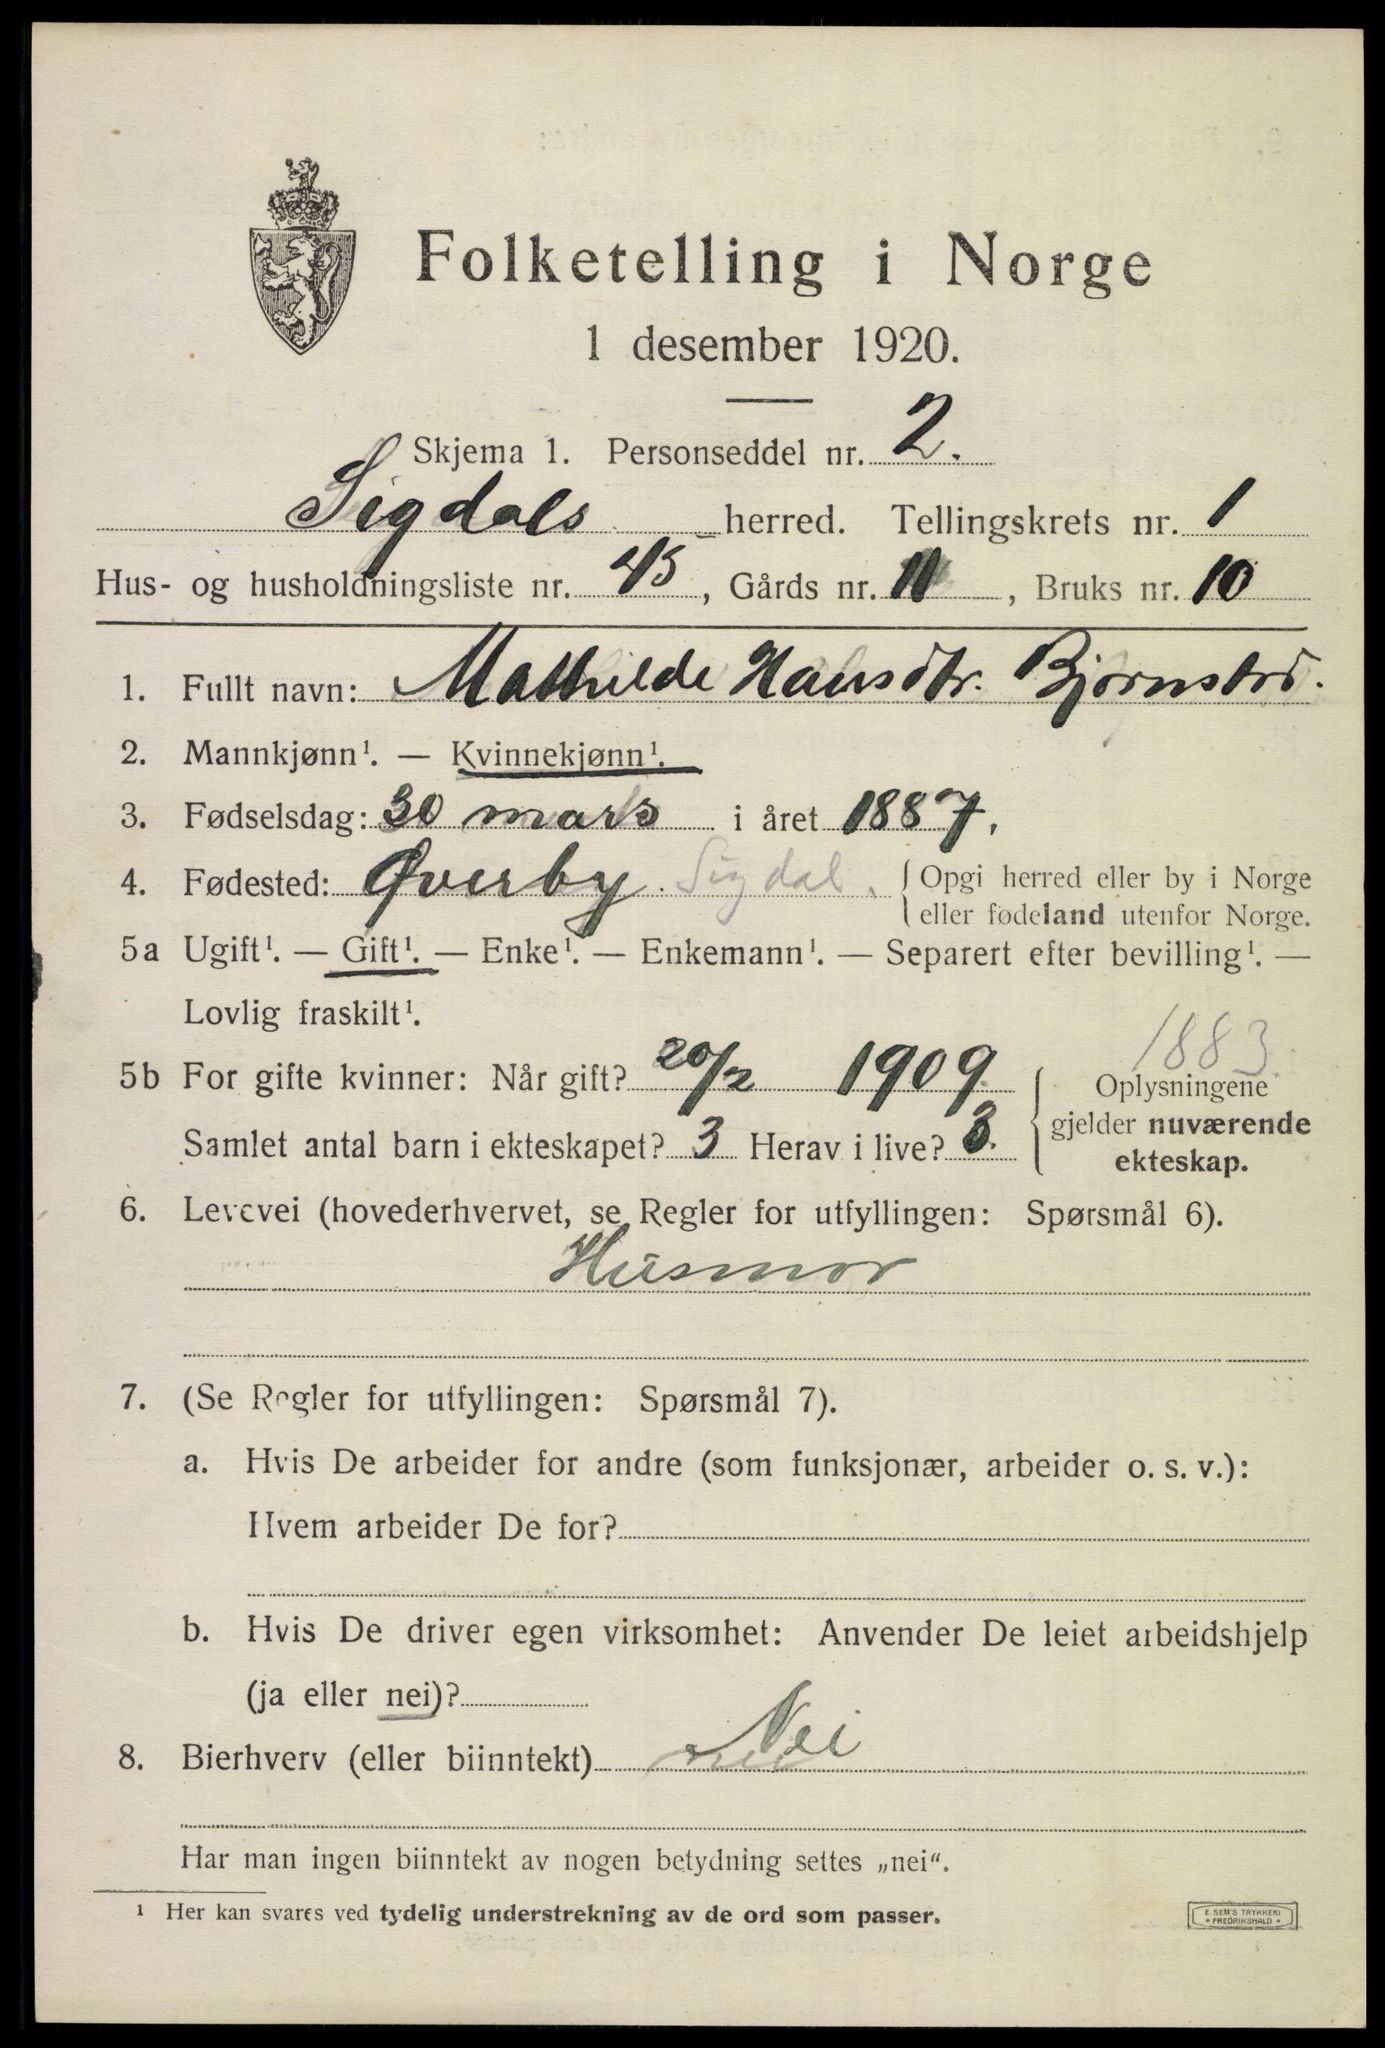 Folketelling i Norge
1 desember 1920.
Skjema 1. Personseddel nr. 2.
Sigdals herred. Tellingskrets nr. 1
Hus- og husholdningsliste nr. 45, Gårds nr. 11, Bruks nr. 10
1. Fullt navn: Mathilde Hansdtr.
2. Mannkjønn¹. — Kvinnekjønn¹.
3. Fødselsdag: 30 mars i året 1887.
4. Fødested: Øverby. Sigdal. Opgi herred eller by i Norge
eller fødeland utenfor Norge.
5a Ugift¹. — Gift¹. — Enke¹. — Enkemann¹. — Separert efter bevilling¹. —
Lovlig fraskilt¹.
1883
5b For gifte kvinner: Når gift? 20/2 1909. Oplysningene
gjelder nuværende
ekteskap.
Samlet antal barn i ekteskapet? 3 Herav i live? 3.
6. Levevei (hovederhvervet, se Regler for utfyllingen: Spørsmål 6).
Husmor
7. (Se Regler for utfyllingen: Spørsmål 7).
a. Hvis De arbeider for andre (som funksjonær, arbeider o. s. v.):
Hvem arbeider De for?
b. Hvis De driver egen virksomhet: Anvender De leiet arbeidshjelp
(ja eller nei)?
8. Bierhverv (eller biinntekt) Nei
Har man ingen biinntekt av nogen betydning settes „nei“.
¹ Her kan svares ved tydelig understrekning av de ord som passer.
E. SEM'S TRYKKERI
* FREDRIKSHALD *